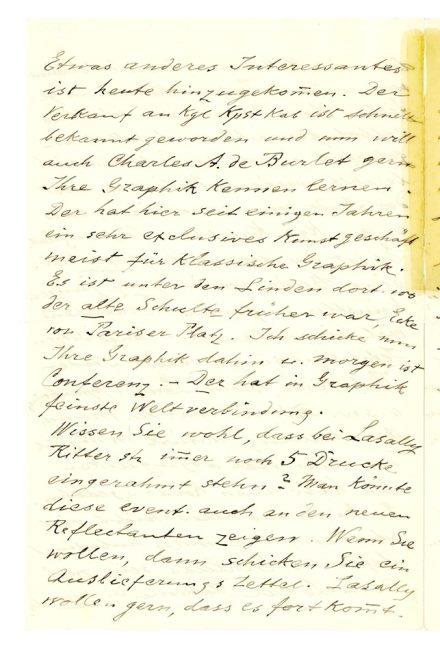 Etwas anderes Interessantes
ist heute hinzugekom̄en. Der
Verkauf an Kgl Kpst Kab ist schnell
bekannt geworden und nun will
auch Charles A. de Burlet gern
Ihre Graphik kennen lernen.
Der hat hier seit einigen Jahren
ein sehr exclusives Kunstgeschäft
meist für klassische Graphik.
Es ist unter den Linden dort wo
der alte Schulte früher war, Ecke
von Pariser Platz. Ich schicke nun
Ihre Graphik dahin u. morgen ist
Conferenz. – Der hat in Graphik
feinste Weltverbindung.
Wissen Sie wohl, dass bei Lasally
Ritterstr im̄er noch 5 Drucke
eingerahmt stehn? Man könnte
diese event. auch an den neuen
Reflectanten zeigen. Wenn Sie
wollen, dann schicken Sie ein
Auslieferungs Zettel. Lasally
wollen gern, dass es fortkom̄t.